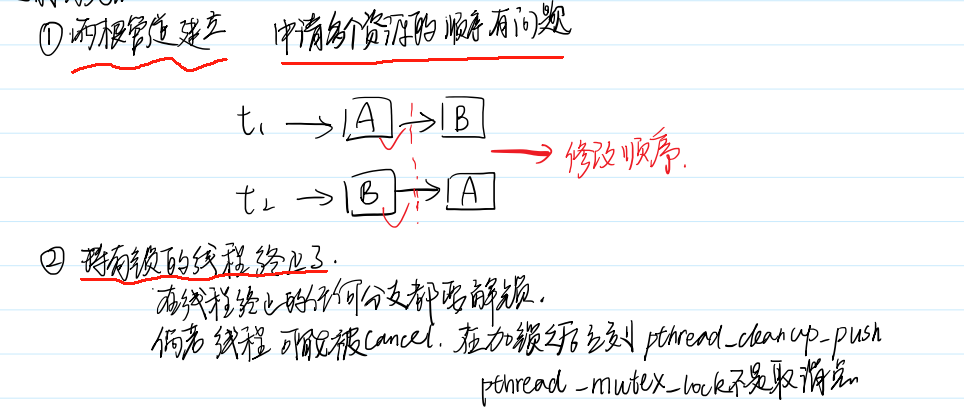 ① 两根管道建立 申请多个资源的顺序有问题
t₁ → A → B
→ 修改顺序.
t₂ → B → A
② 持有锁的线程终止了.
在线程终止的任何分支都要解锁.
倘若线程可能被cancel. 在加锁之后立刻 pthread_cleanup_push
pthread_mutex_lock不是取消点.